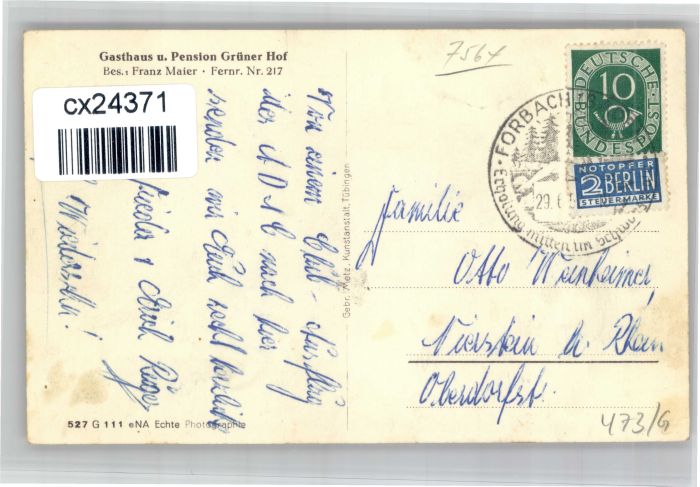 Gasthaus u. Pension Grüner Hof
Bes.: Franz Maier · Fernr. Nr. 217
cx24371
7564
DEUTSCHE
BUNDESPOST
10
NOTOPFER
2 BERLIN
STEUERMARKE
FORBACH
29.6.5
Erholung mitten im Schw
Von einem Club-Ausflug
des A D A C nach hier
senden wir Euch recht herzliche
Frieda & Erich
Wiedersehn!
Gebr. Metz, Kunstanstalt, Tübingen
Familie
Otto Weinheimer
Nierstein a. Rhein
Oberdorfstr.
473/G
527 G 111 eNA Echte Photographie